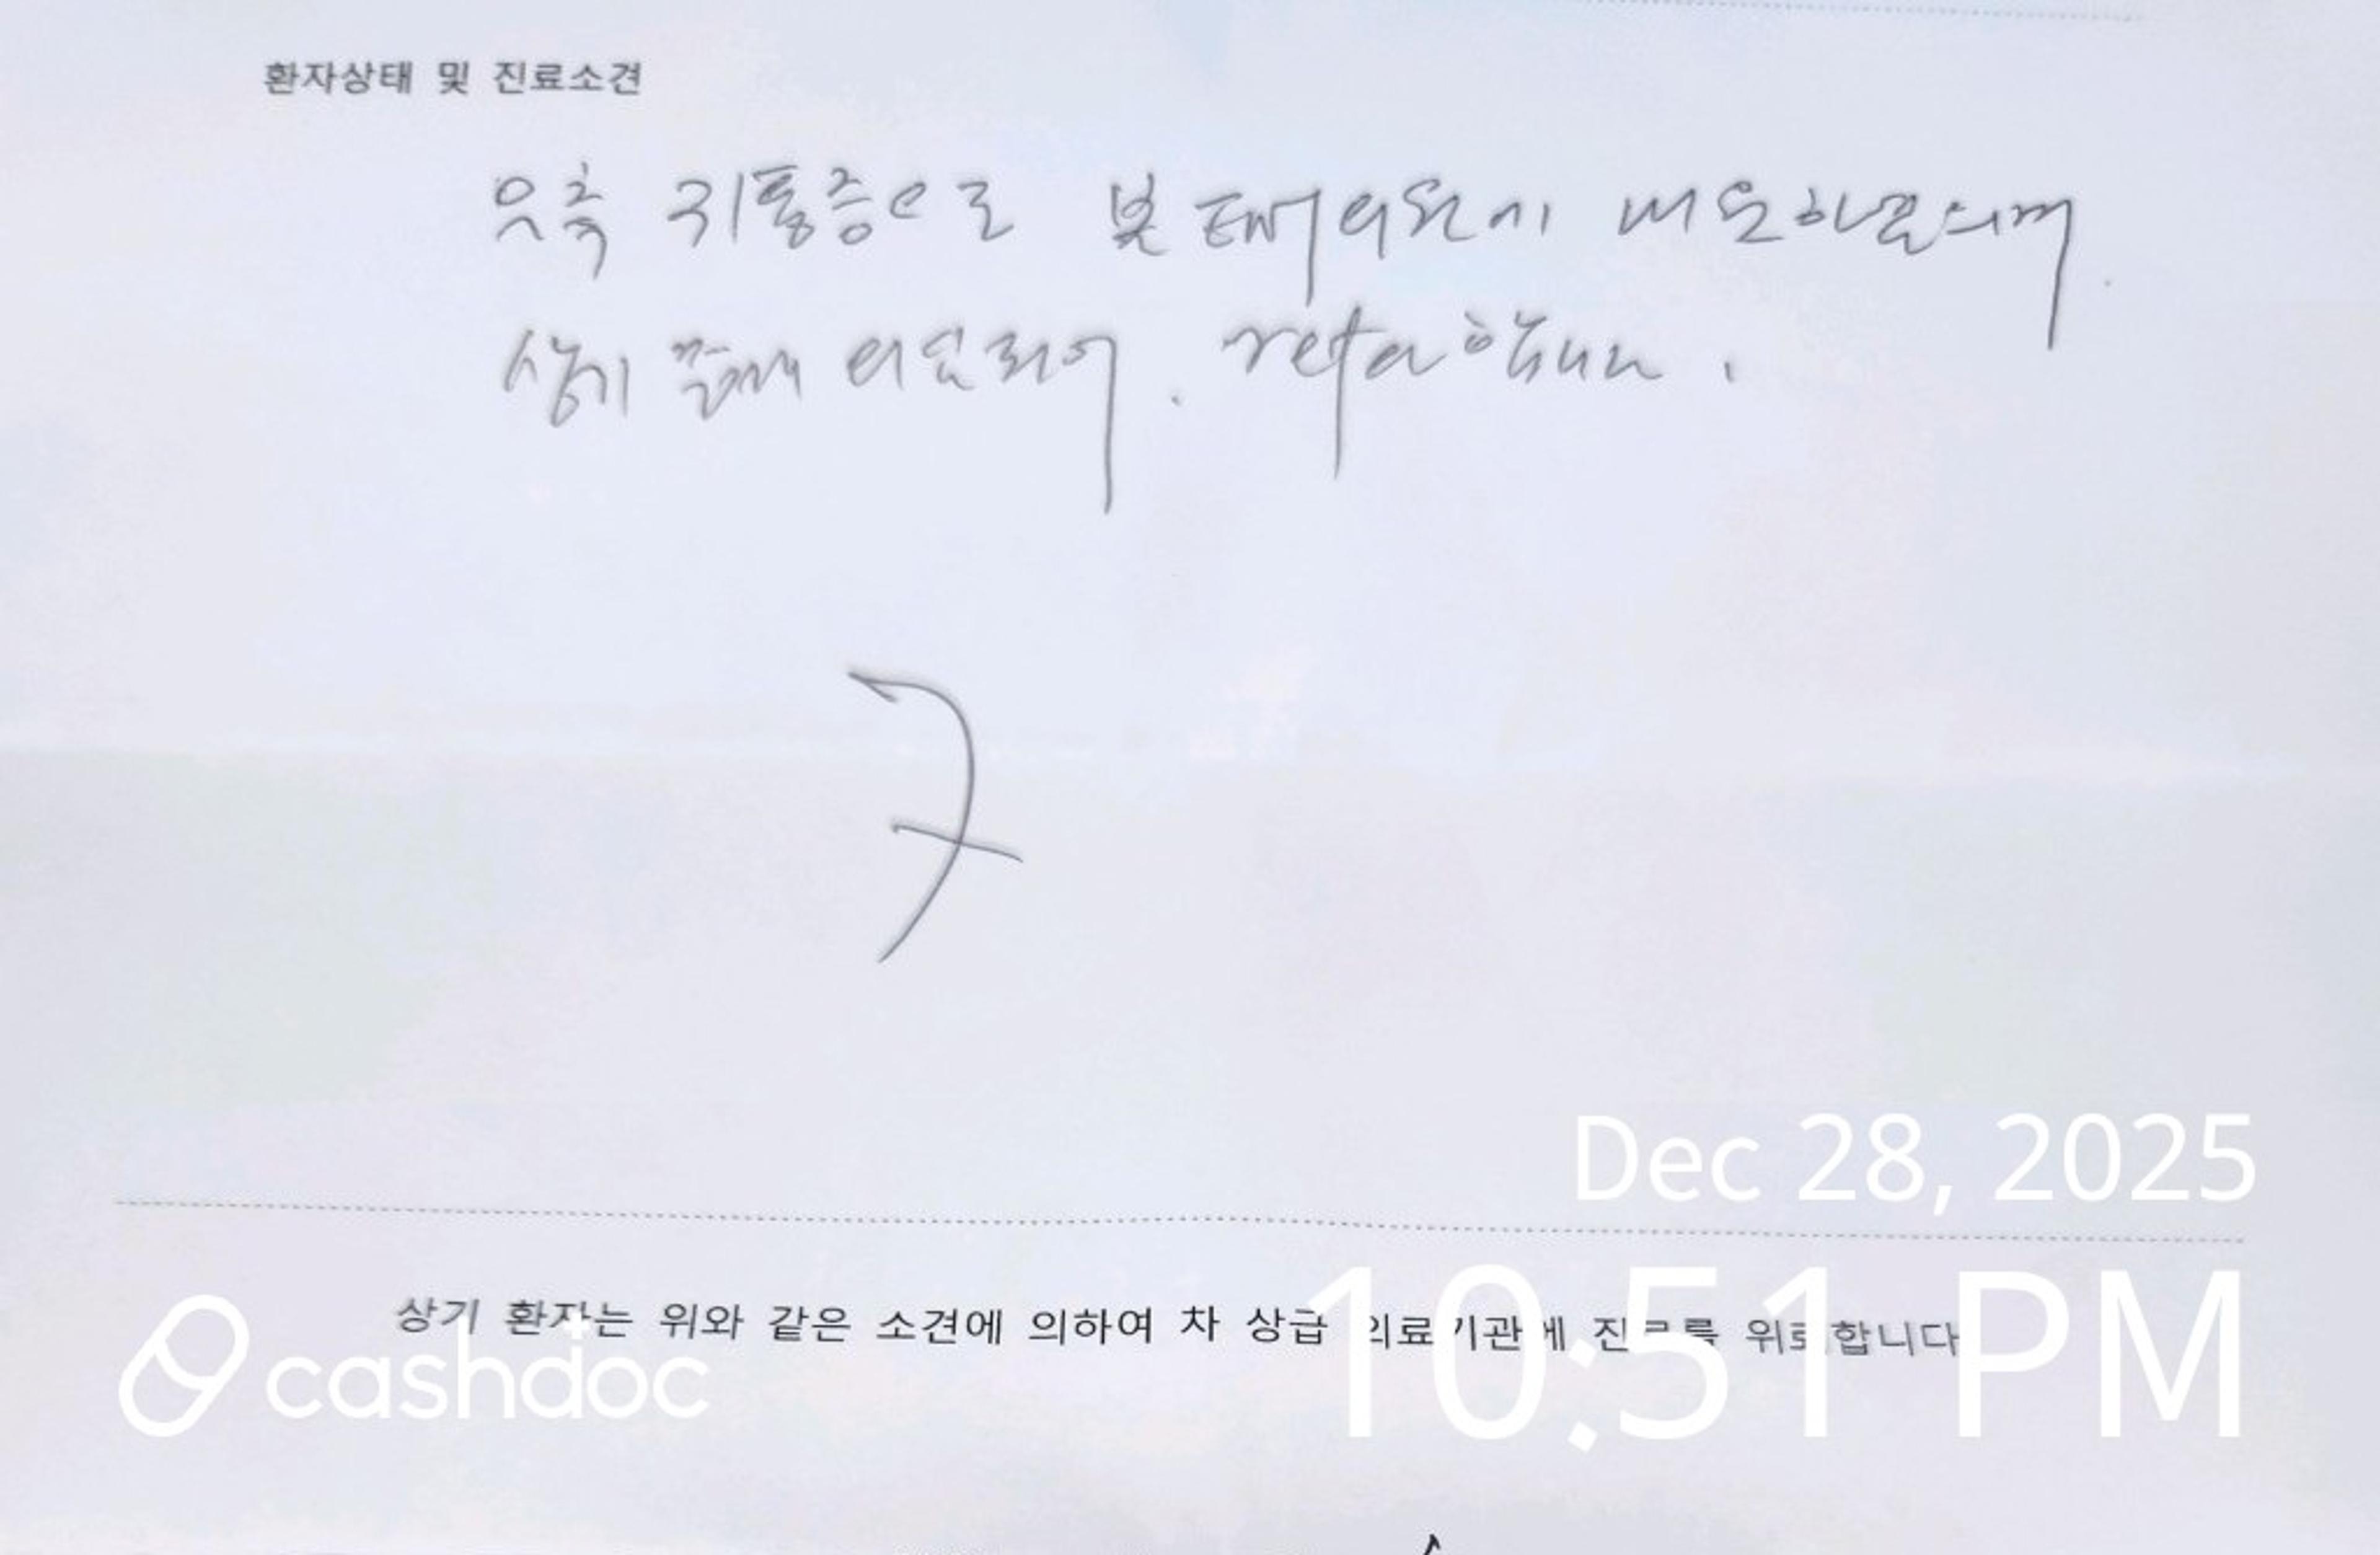 환자상태 및 진료소견
우측 귀통증으로 본 의원에 내원하
상기 의심되어. refer 합니다.
Dec 28, 2025
상기 환자는 위와 같은 소견에 의하여 차 상급 의료기관에 진료를 위뢰합니다
cashdoc
10:51 PM